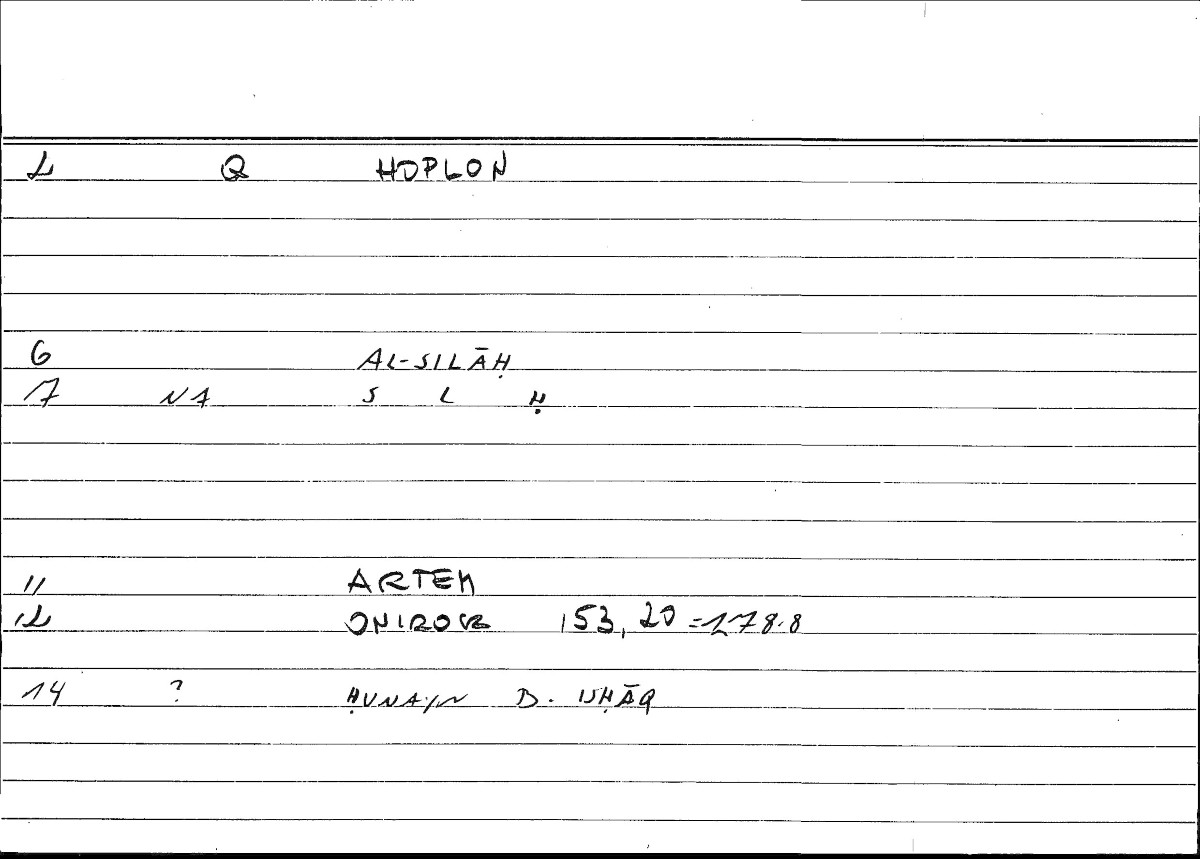 2 Q HOPLON
6 AL-SILĀḤ
7 NA S L Ḥ
11 ARTEM
12 ONIROCR 153, 20 = 278.8
14 ? ḤUNAYN B. ISḤĀQ